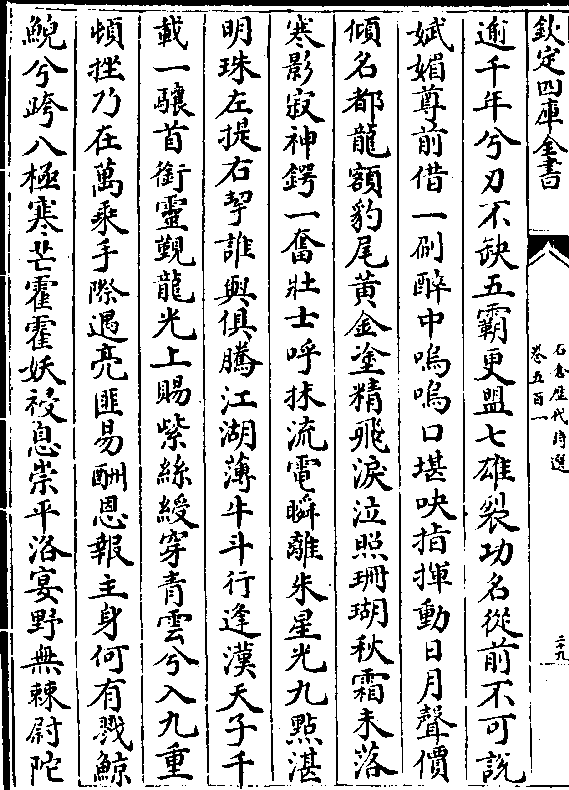 欽定四庫全書
石倉歴代詩選
卷五百一
二十九
逾千年兮刃不缺五霸更盟七雄裂功名從前不可說
娬媚尊前借一刷醉中嗚嗚口堪吷指揮動日月聲價
傾名都龍額豹尾黃金塗精飛淚泣照珊瑚秋霜未落
寒影寂神鍔一奮壯士呼抹流電瞬離朱星光九點湛
明珠左提右挈誰與俱騰江湖薄牛斗行逢漢天子千
載一驤首衝靈覲龍光上賜紫絲綬穿青雲兮入九重
頓挫乃在萬乘手際遇亮匪易酬恩報主身何有戮鯨
鯢兮跨八極寒芒霍霍妖祲息崇平洛宴野無棘尉陀